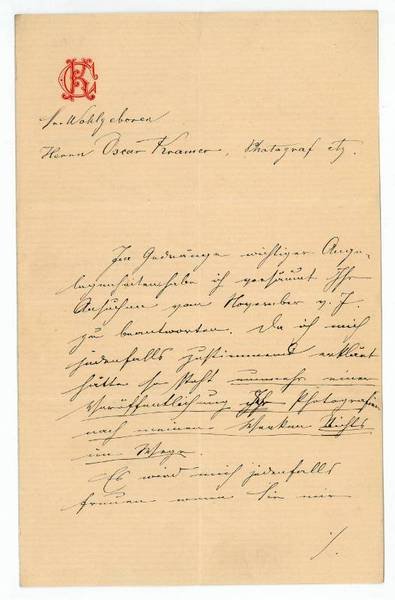 Sr. Wohlgeboren
Herrn Oscar Kramer, Photograf etz.
Im Gedränge wichtiger Ange-
legenheiten habe ich versäumt Ihr
Ansuchen vom November v. J.
zu beantworten. Da ich mich
jedenfalls zustimmend erklärt
hätte so steht nunmehr einer
Veröffentlichung Ihr Photografien
nach meinen Werken Nichts
im Wege.
Es wird mich jedenfalls
freuen wenn Sie mir
./.